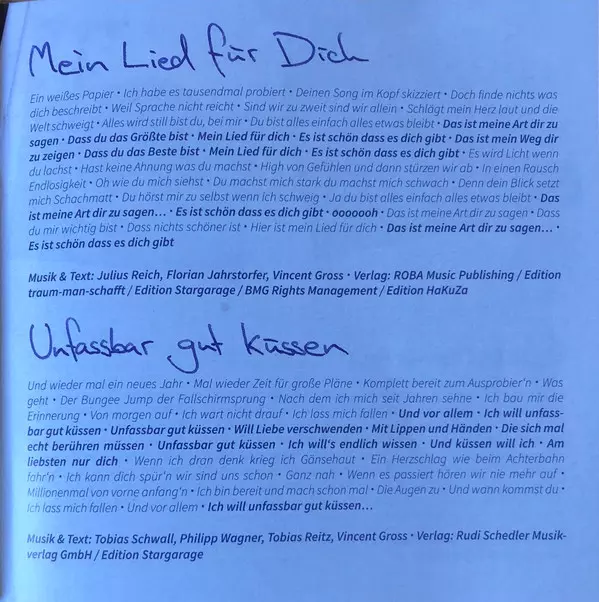 Mein Lied für Dich
Ein weißes Papier • Ich habe es tausendmal probiert • Deinen Song im Kopf skizziert • Doch finde nichts was
dich beschreibt • Weil Sprache nicht reicht • Sind wir zu zweit sind wir allein • Schlägt mein Herz laut und die
Welt schweigt • Alles wird still bist du, bei mir • Du bist alles einfach alles etwas bleibt • Das ist meine Art dir zu
sagen • Dass du das Größte bist • Mein Lied für dich • Es ist schön dass es dich gibt • Das ist mein Weg dir
zu zeigen • Dass du das Beste bist • Mein Lied für dich • Es ist schön dass es dich gibt • Es wird Licht wenn
du lachst • Hast keine Ahnung was du machst • High von Gefühlen und dann stürzen wir ab • In einen Rausch
Endlosigkeit • Oh wie du mich siehst • Du machst mich stark du machst mich schwach • Denn dein Blick setzt
mich Schachmatt • Du hörst mir zu selbst wenn ich schweig • Ja du bist alles einfach alles etwas bleibt • Das
ist meine Art dir zu sagen... • Es ist schön dass es dich gibt • ooooooh • Das ist meine Art dir zu sagen • Dass
du mir wichtig bist • Dass nichts schöner ist • Hier ist mein Lied für dich • Das ist meine Art dir zu sagen... •
Es ist schön dass es dich gibt
Musik & Text: Julius Reich, Florian Jahrstorfer, Vincent Gross • Verlag: ROBA Music Publishing / Edition
traum-man-schafft / Edition Stargarage / BMG Rights Management / Edition HaKuZa
Unfassbar gut küssen
Und wieder mal ein neues Jahr • Mal wieder Zeit für große Pläne • Komplett bereit zum Ausprobier'n • Was
geht • Der Bungee Jump der Fallschirmsprung • Nach dem ich mich seit Jahren sehne • Ich bau mir die
Erinnerung • Von morgen auf • Ich wart nicht drauf • Ich lass mich fallen • Und vor allem • Ich will unfass-
bar gut küssen • Unfassbar gut küssen • Will Liebe verschwenden • Mit Lippen und Händen • Die sich mal
echt berühren müssen • Unfassbar gut küssen • Ich will's endlich wissen • Und küssen will ich • Am
liebsten nur dich • Wenn ich dran denk krieg ich Gänsehaut • Ein Herzschlag wie beim Achterbahn
fahr'n • Ich kann dich spür'n wir sind uns schon • Ganz nah • Wenn es passiert hören wir nie mehr auf •
Millionenmal von vorne anfang'n • Ich bin bereit und mach schon mal • Die Augen zu • Und wann kommst du •
Ich lass mich fallen • Und vor allem • Ich will unfassbar gut küssen...
Musik & Text: Tobias Schwall, Philipp Wagner, Tobias Reitz, Vincent Gross • Verlag: Rudi Schedler Musik-
verlag GmbH / Edition Stargarage